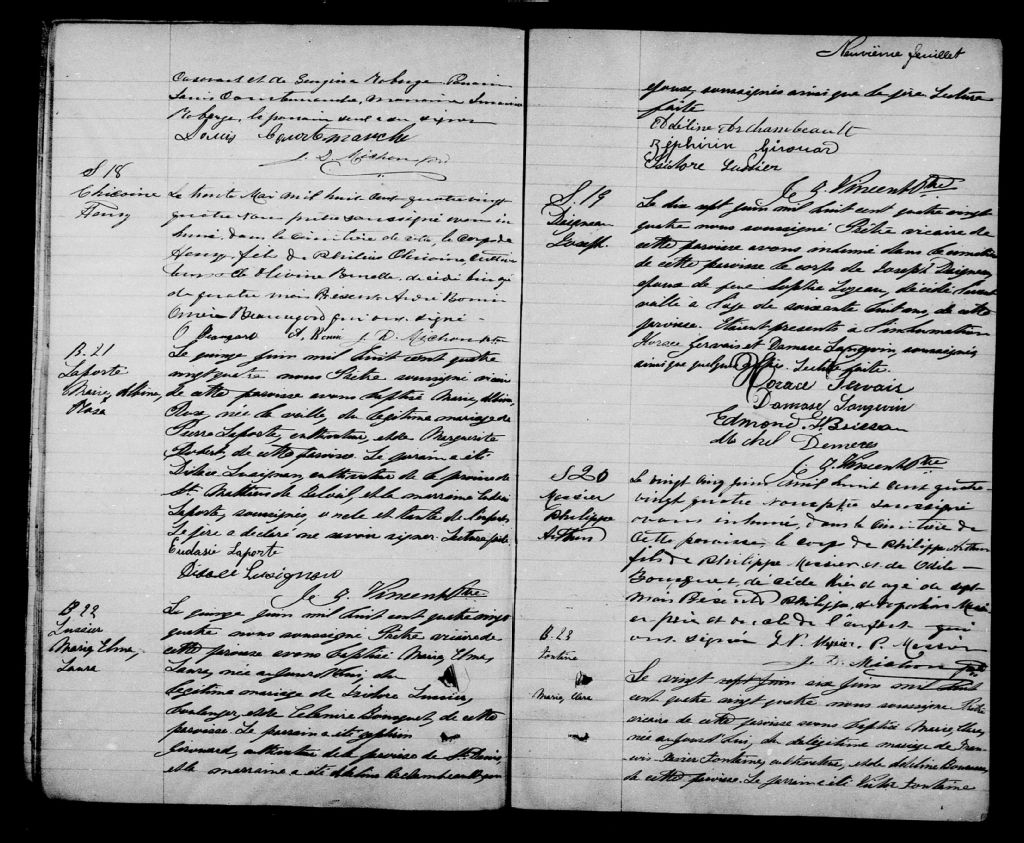 et de Roberge
Louis Courtemanche, Marraine
Roberge, le parrain seul
Louis Courtemanche
J. D. Michon ptr
S 18
Chicoine
Henry
Le trente Mai mil huit cent quatre vingt
quatre nous prêtre soussigné avons in
humé, dans le cimetière de cette le corps de
Henry, fils de Chicoine, cultiva
teur & d'Olivine Brunelle, décédé
de quatre mois Présents André Bonin
Beauregard qui ont signé -
O Beaugard A. Bonin J. D. Michon ptr
B. 21
Laporte
Marie, Albina,
Rosa
Le quinze Juin mil huit cent quatre
vingt quatre nous Prêtre soussigné vicaire
de cette paroisse avons baptisé Marie, Albina,
Rosa, née la veille, du légitime mariage de
Pierre Laporte, cultivateur, et de Marguerite
de cette paroisse. Le parrain a été
Lusignan, cultivateur de la paroisse de
St. Mathieu de Belœil et la marraine
Laporte, soussignés, oncle et tante de l'enfant.
Le père a déclaré ne savoir signer. Lecture faite.
Eudasie Laporte
Lusignan
Je G. Vincent Ptre
B. 22
Lussier
Marie, Elma,
Laura
Le quinze Juin mil huit cent quatre vingt
quatre nous soussigné Prêtre vicaire de
cette paroisse avons baptisé Marie, Elma,
Laura, née aujourd'hui, du
légitime mariage de Isidore Lussier,
boulanger, et de Bousquet, de cette
paroisse. Le parrain a été Zéphirin
Girouard, cultivateur de la paroisse de St. Denis,
et la marraine a été Adeline Archambeault,
Neuvième feuillet
épouse, soussignés ainsi que le père. Lecture
faite
Adéline Archambeault
Zéphirin Girouard
Isidore Lussier
Je G. Vincent Ptre
S. 19
Daigneau
Joseph
Le dix sept Juin mil huit cent quatre vingt
quatre nous soussigné Prêtre vicaire de
cette paroisse avons inhumé dans le cimetière
de cette paroisse le corps de Joseph Daigneau,
époux de feue Sophie, décédé l'avant
veille à l'âge de soixante huit ans de cette
paroisse. Etaient présents à l'inhumation
Horace Gervais et Damase Langevin, soussignés
ainsi que quelques Lecture faite.
Horace Gervais
Damase Langevin
Edmond
Michel Demers
Je G. Vincent Ptre
S 20
Messier
Philippe
Arthur
Le vingt cinq Juin mil huit cent quatre-
vingt quatre nous ptre soussigné
avons inhumé, dans le cimetière de
cette paroisse, le corps de Philippe Arthur
fils de Philippe Messier et de Odile
Bousquet décédé hier et agé de sept
mois Présents Philippe & Napoléon Messi
er père et oncle de l'enfant qui
ont signé N. Messier, P. Messier
J. D. Michon ptr.
B. 23
Fontaine
Marie, Clara
Le vingt sept Juin six Juin mil huit
cent quatre vingt quatre nous soussigné Prêtre
vicaire de cette paroisse avons baptisé Marie, Clara,
née aujourd'hui, du légitime mariage de Fran-
çois Xavier Fontaine, cultivateur, et de Adeline
de cette paroisse. Le parrain a été Victor Fontaine